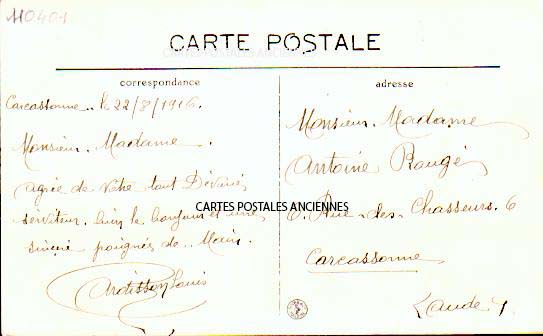 110401
CARTE POSTALE
correspondance
adresse
Carcassonne.. le 22/8/1916.
Monsieur. Madame
agrée de Votre tout Dévoué
serviteur. bien le bonjour et une
sincère poignés de Main.
Ardisson Louis
Monsieur. Madame
Antoine Rougé
6. Rue des Chasseurs. 6
Carcassonne
L'aude
CARTES POSTALES ANCIENNES